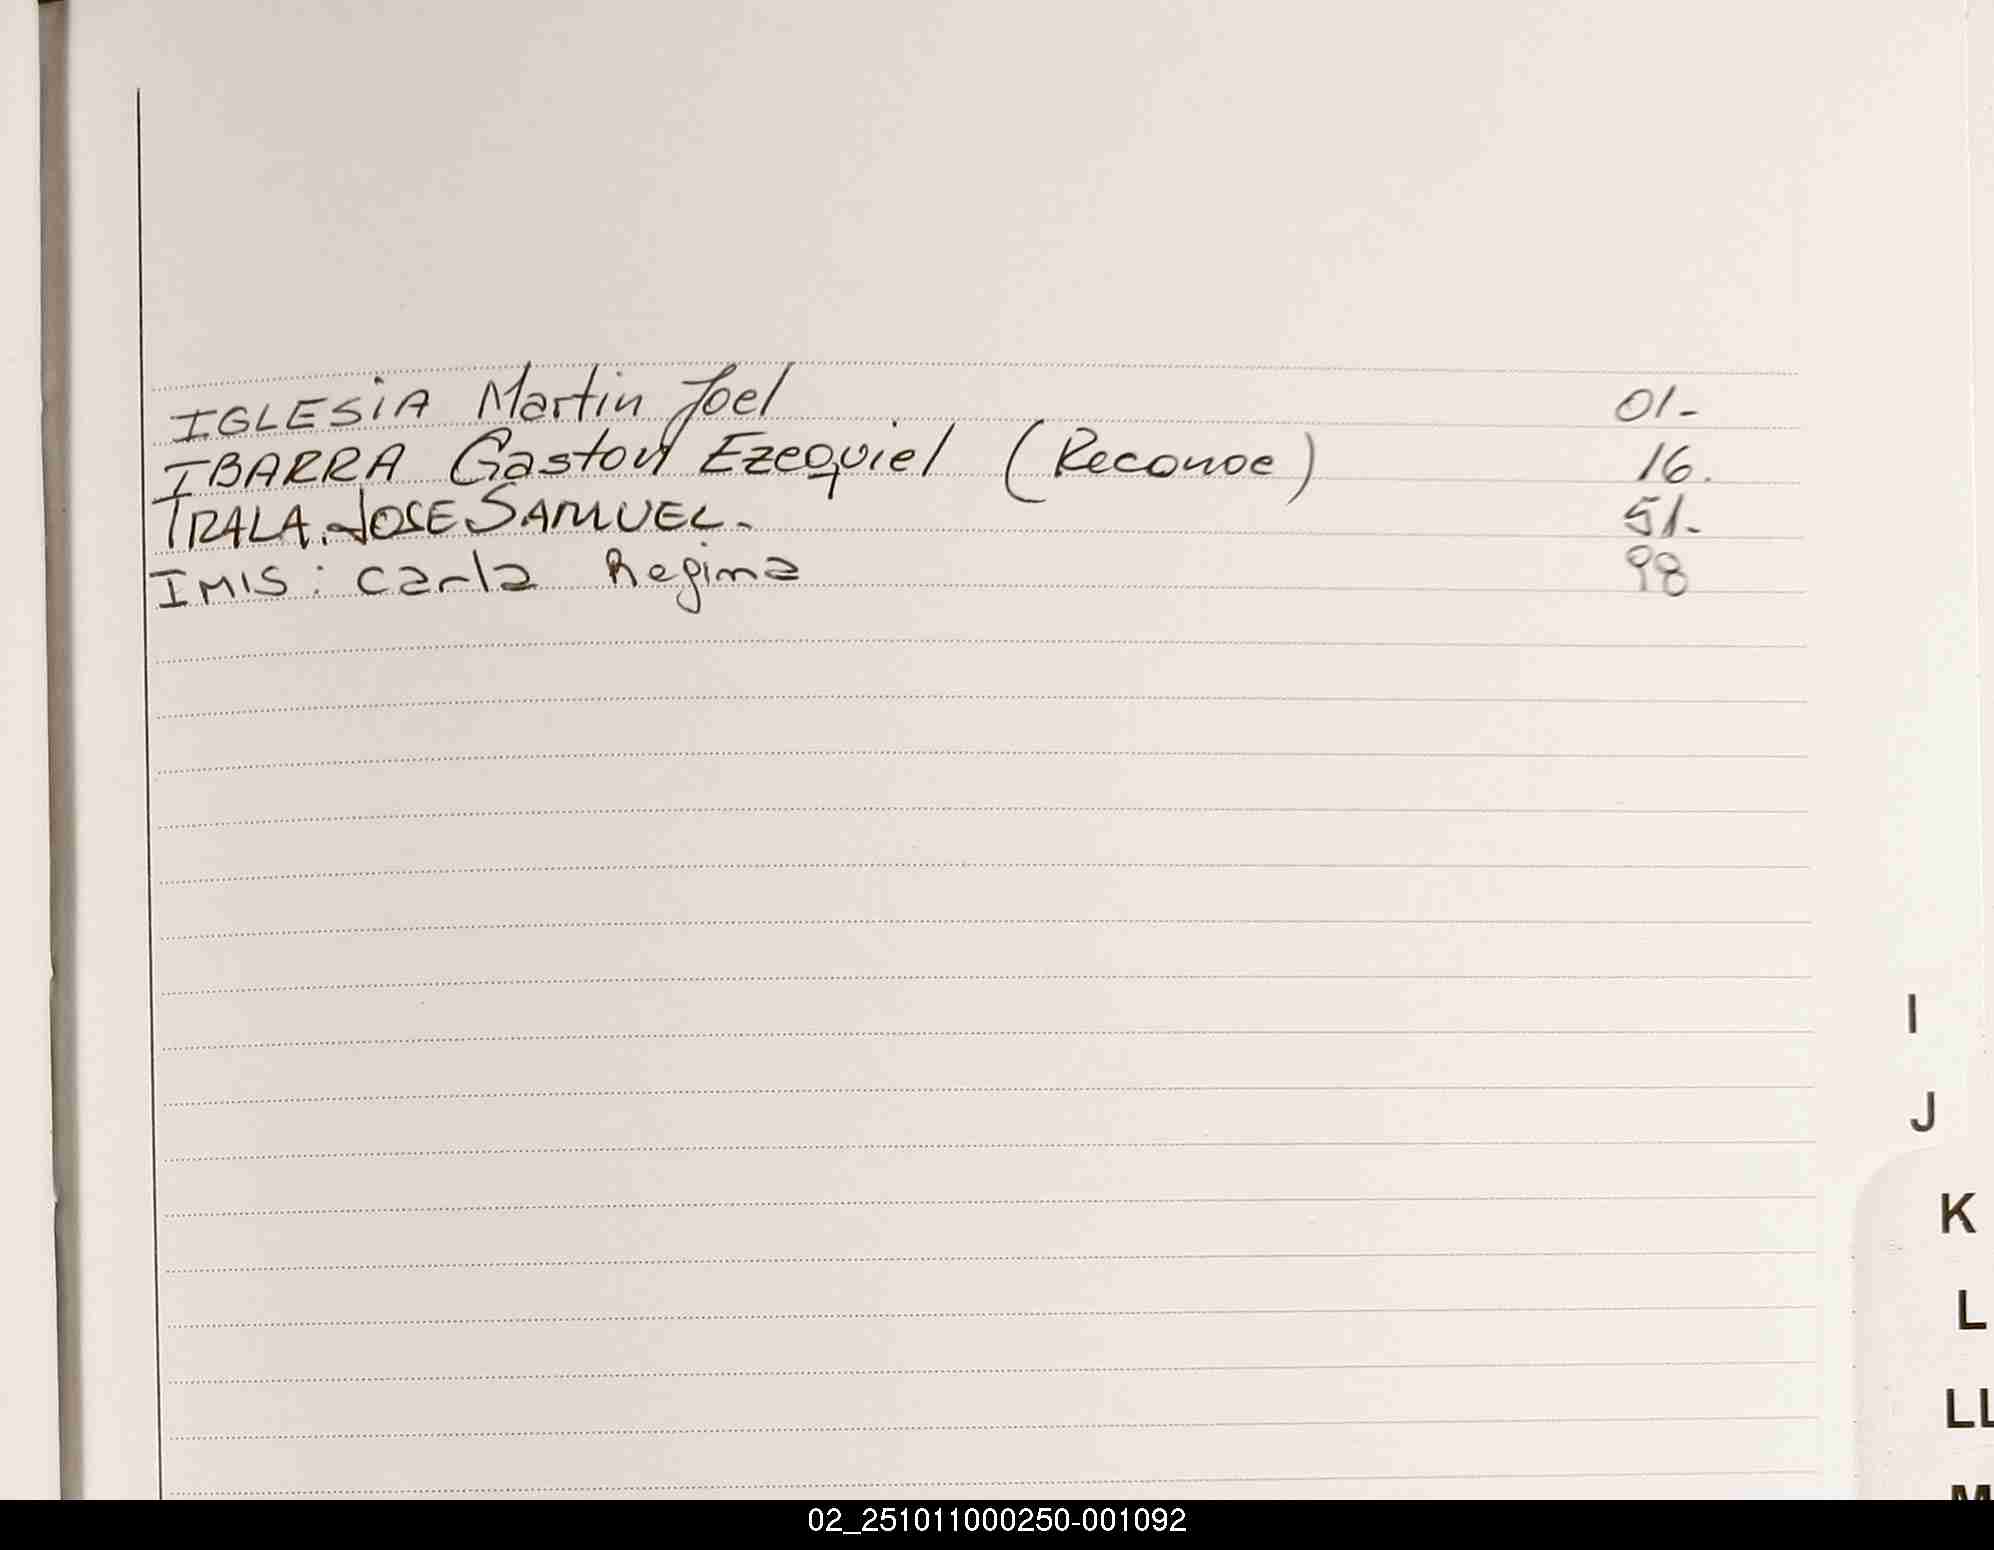 IGLESiA Martin Joel 01-
IBARRA Gaston Ezequiel (Reconoe) 16.
IRALA. JOSE SAMUEL. 51-
IMIS: Carla Regina 98
I
J
K
L
LL
M
02_251011000250-001092